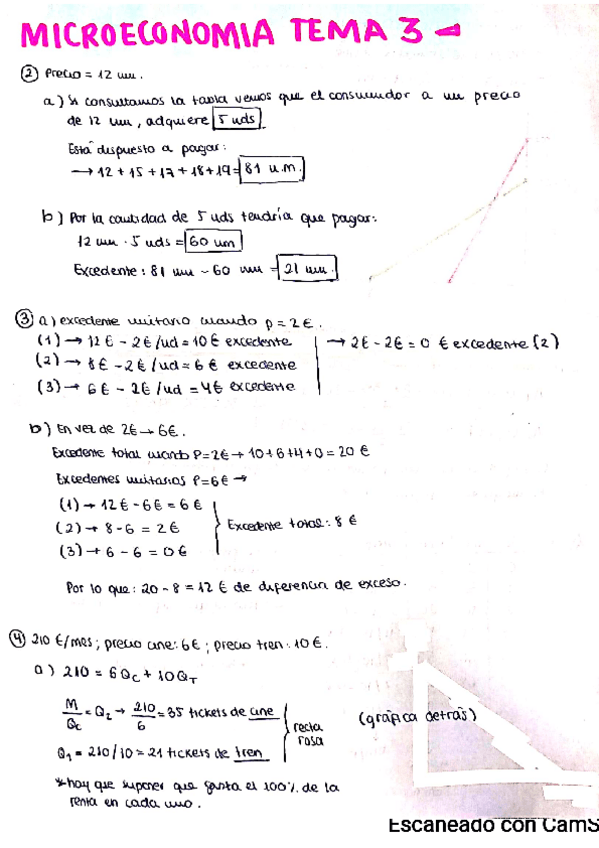 MICROECONOMIA TEMA 3
② Precio = 12 um.
a) Si consultamos la tabla vemos que el consumidor a un precio
de 12 um, adquiere 5 uds
Está dispuesto a pagar:
→ 12 + 15 + 17 + 18 + 19 = 81 u.m.
b) Por la cantidad de 5 uds tendría que pagar:
12 um · 5 uds = 60 um
Excedente: 81 um - 60 um = 21 um.
③ a) excedente unitario cuando p = 2€.
(1) → 12€ - 2€/ud = 10€ excedente → 2€ - 2€ = 0 € excedente (2)
(2) → 8€ - 2€/ud = 6€ excedente
(3) → 6€ - 2€/ud = 4€ excedente
b) En vez de 2€ → 6€.
Excedente total cuando P=2€ → 10+6+4+0 = 20 €
Excedentes unitarios P=6€ →
(1) → 12€ - 6€ = 6€
(2) → 8 - 6 = 2€ Excedente total: 8 €
(3) → 6 - 6 = 0€
Por lo que: 20 - 8 = 12 € de diferencia de exceso.
④ 210 €/mes; precio cine: 6€; precio tren: 10€.
a) 210 = 6Qc + 10QT
M/Qc = Q2 → 210/6 = 35 tickets de cine (gráfica detrás)
recta rosa
Q1 = 210/10 = 21 tickets de tren
*hay que suponer que gasta el 100% de la
renta en cada uno.
Escaneado con CamS